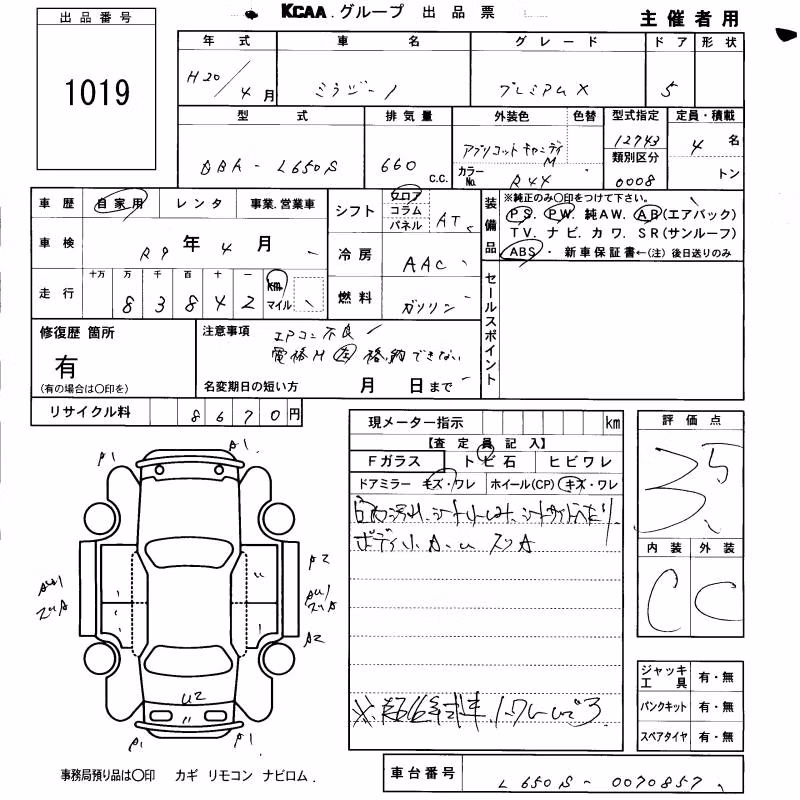 KCAA.グループ 出品票
主催者用
出品番号
1019
年式 車名 グレード ドア 形状
H20/4月 ミラジーノ プレミアムX 5
型式 排気量 外装色 色替 型式指定 定員・積載
DBA-L650S 660 C.C. アプリコットキャンディM 12743 4名
カラーNo. R44 類別区分 0008 トン
車歴 自家用 レンタ 事業.営業車
車検 R9年4月
走行 十万 万 千 百 十 一 km マイル
8 3 8 4 2
シフト フロア コラム パネル AT
冷房 AAC
燃料 ガソリン
装備品 ※純正のみ〇印をつけて下さい。
PS. PW. 純AW. AB(エアバック)
TV. ナビ. カワ. SR(サンルーフ)
ABS・新車保証書←(注) 後日送りのみ
セールスポイント
修復歴 箇所
有
(有の場合は〇印を)
注意事項 エアコン不良
電格M 左 格納できない
名変期日の短い方 月 日まで
リサイクル料 8670円
現メーター指示 km
【査定員記入】
Fガラス トビ石 ヒビワレ
ドアミラー キズ・ワレ ホイール(CP) キズ・ワレ
ボディ小A.U スリA
評価点
3.5
内装 外装
C C
A1 A1
A2
AU1 スリA
AU1 スリA
A2
U2
A1 A1
ジャッキ工具 有・無
パンクキット 有・無
スペアタイヤ 有・無
事務局預り品は〇印 カギ リモコン ナビロム.
車台番号 L650S-0070857